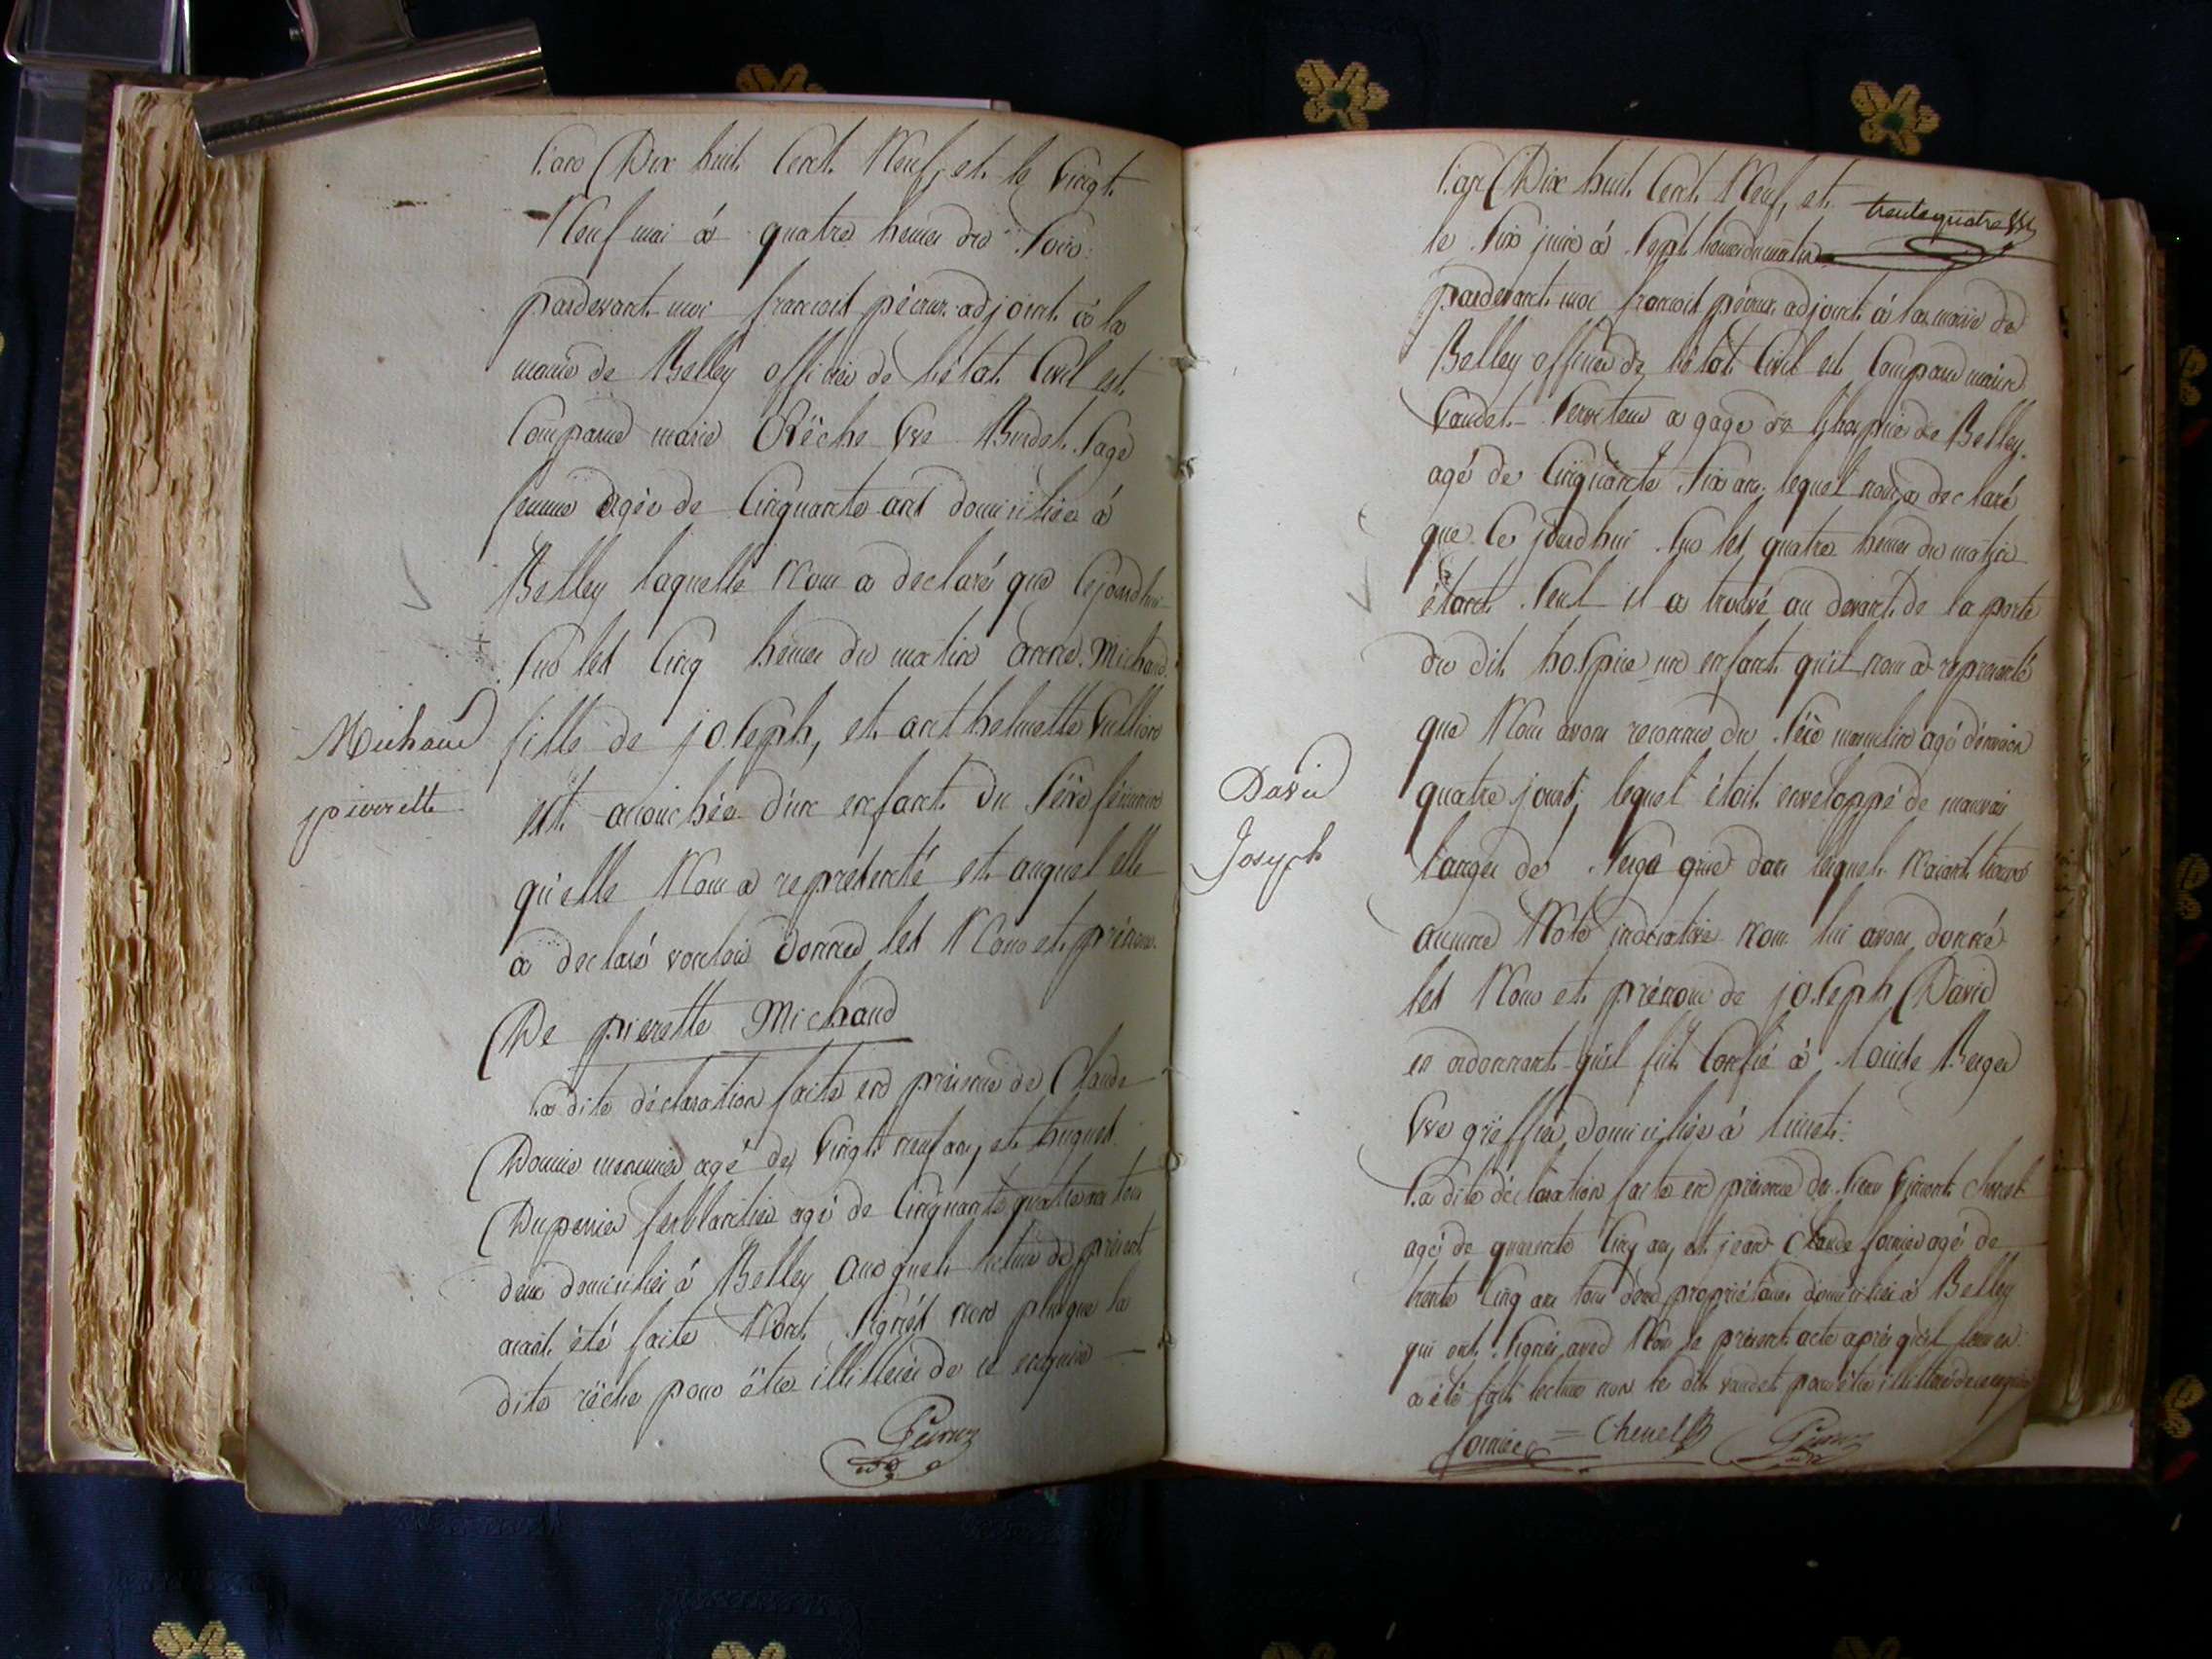 L'an Dix huit Cent Neuf, et le Vingt
Neuf mai à quatre heures du Soir
pardevant moi françois adjoint à la
mairie de Belley officier de l'état Civil est
Comparue marie Rèche Vve Burdet Sage
femme agée de Cinquante ans domiciliée à
Belley laquelle Nous a declaré que Cejourdhui
Sur les Cinq heures du matin anne Michaud
Michaud
pierrette
fille de joseph, et anthelmette
est accouchée d'un enfant du Sexe féminin
qu'elle Nous a representé et auquel elle
a declaré vouloir donner les Nom et prénom
De pierette Michaud
La dite déclaration faite en présence de Claude
agé de Vingt neuf ans, et huguet
ferblantier agé de Cinquante quatre ans tous
deux domiciliés à Belley auxquels lecture du présent
aiant été faite N'ont Signés non plus que la
dite rèche pour être illitterés de ce enquis
L'an Dix huit Cent Neuf, et
trente quatre
le Six juin à Sept heures du matin
pardevant moi françois adjoint à la mairie de
Belley officier de l'état Civil est Comparu
Vaudet Serviteur a gage de l'hospice de Belley
agé de Cinquante Six ans lequel nous a declaré
que Cejourdhui Sur les quatre heures du matin
étant Seul il a trouvé au devant de la porte
du dit hospice un enfant qu'il nous a representé
que Nous avons reconnu du Sexe masculin agé d'environ
David
Joseph
quatre jours, lequel étoit enveloppé de mauvais
langes de Serge grise dans lesquels N'aiant trouvé
aucune Note indicative nous lui avons donné
les Nom et prénom de joseph David
en ordonnant qu'il fut Confié à Louise Berger
Vve domiciliée à
La dite déclaration faite en présence de Sieur Vincent
agé de quarante Cinq ans, et jean Claude agé de
trente Cinq ans tous deux propriétaires domiciliés à Belley
qui ont Signés avec Nous le présent acte après qu'il leur en
a été fait lecture non le dit vaudet pour être illitteré de ce enquis